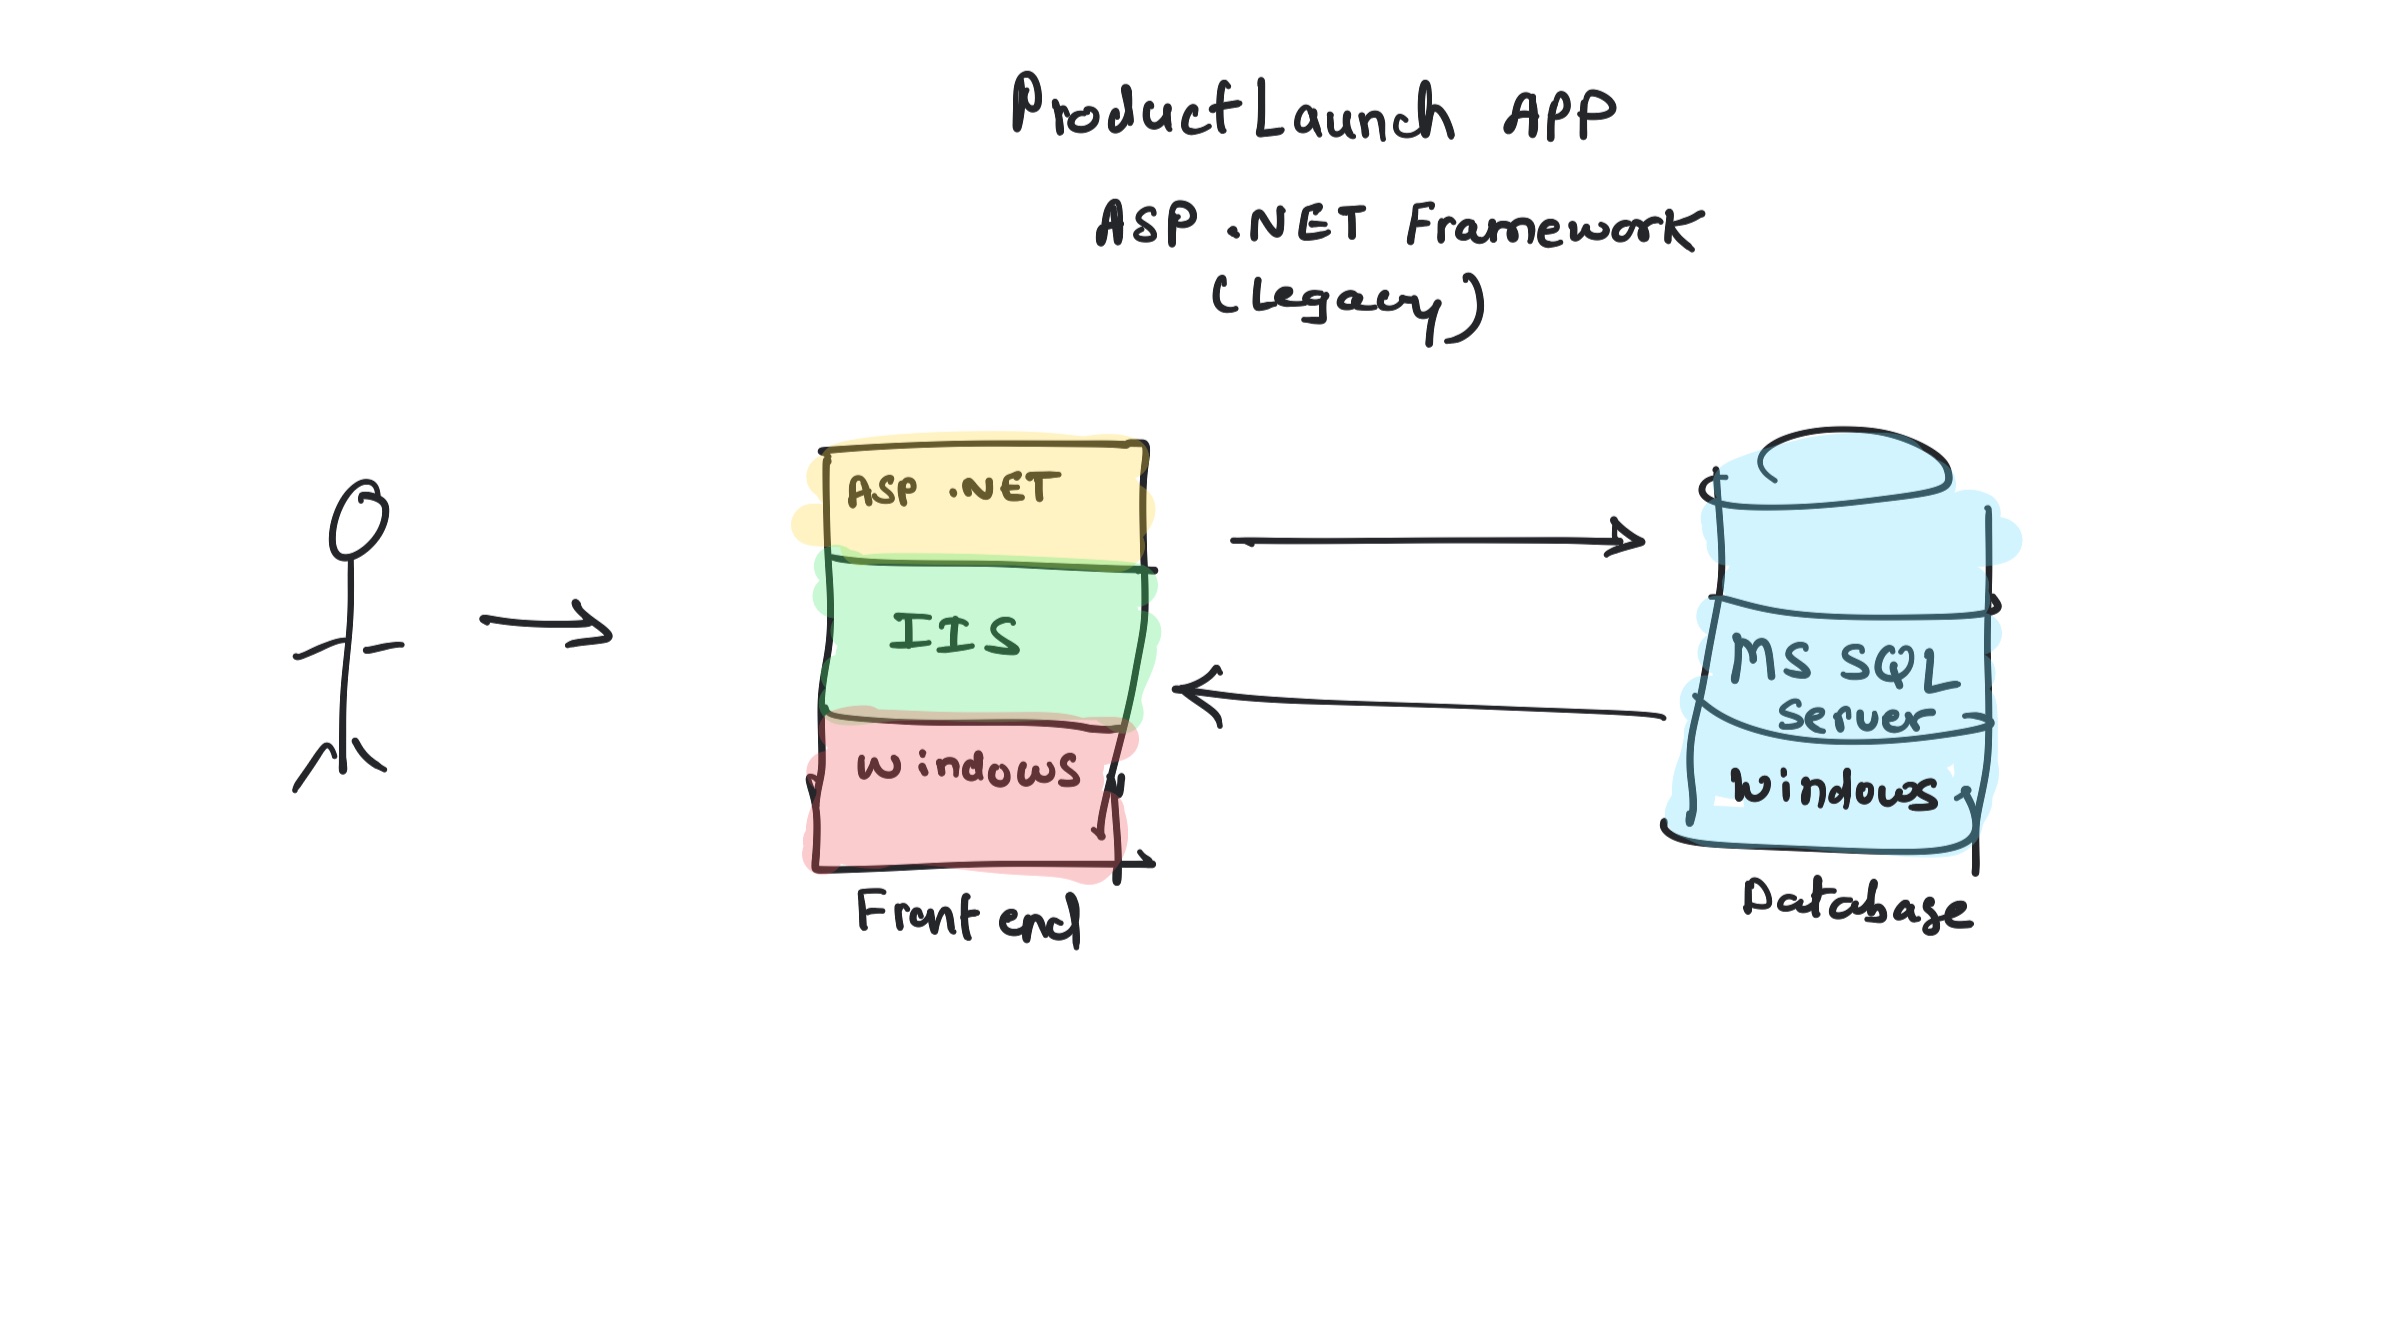 ProductLaunch APP
ASP .NET Framework
(Legacy)
ASP .NET
IIS
Windows
Front end
MS SQL
Server
Windows
Database